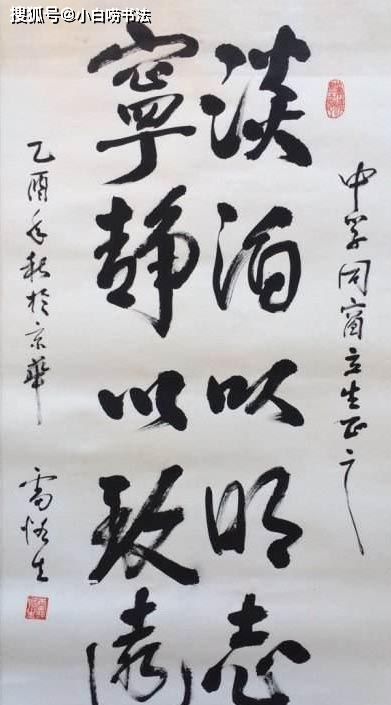 搜狐号@小白唠书法
中学同窗立生正之
淡泊以明志
寧静以致遠
乙酉年秋於京華
雷恪生